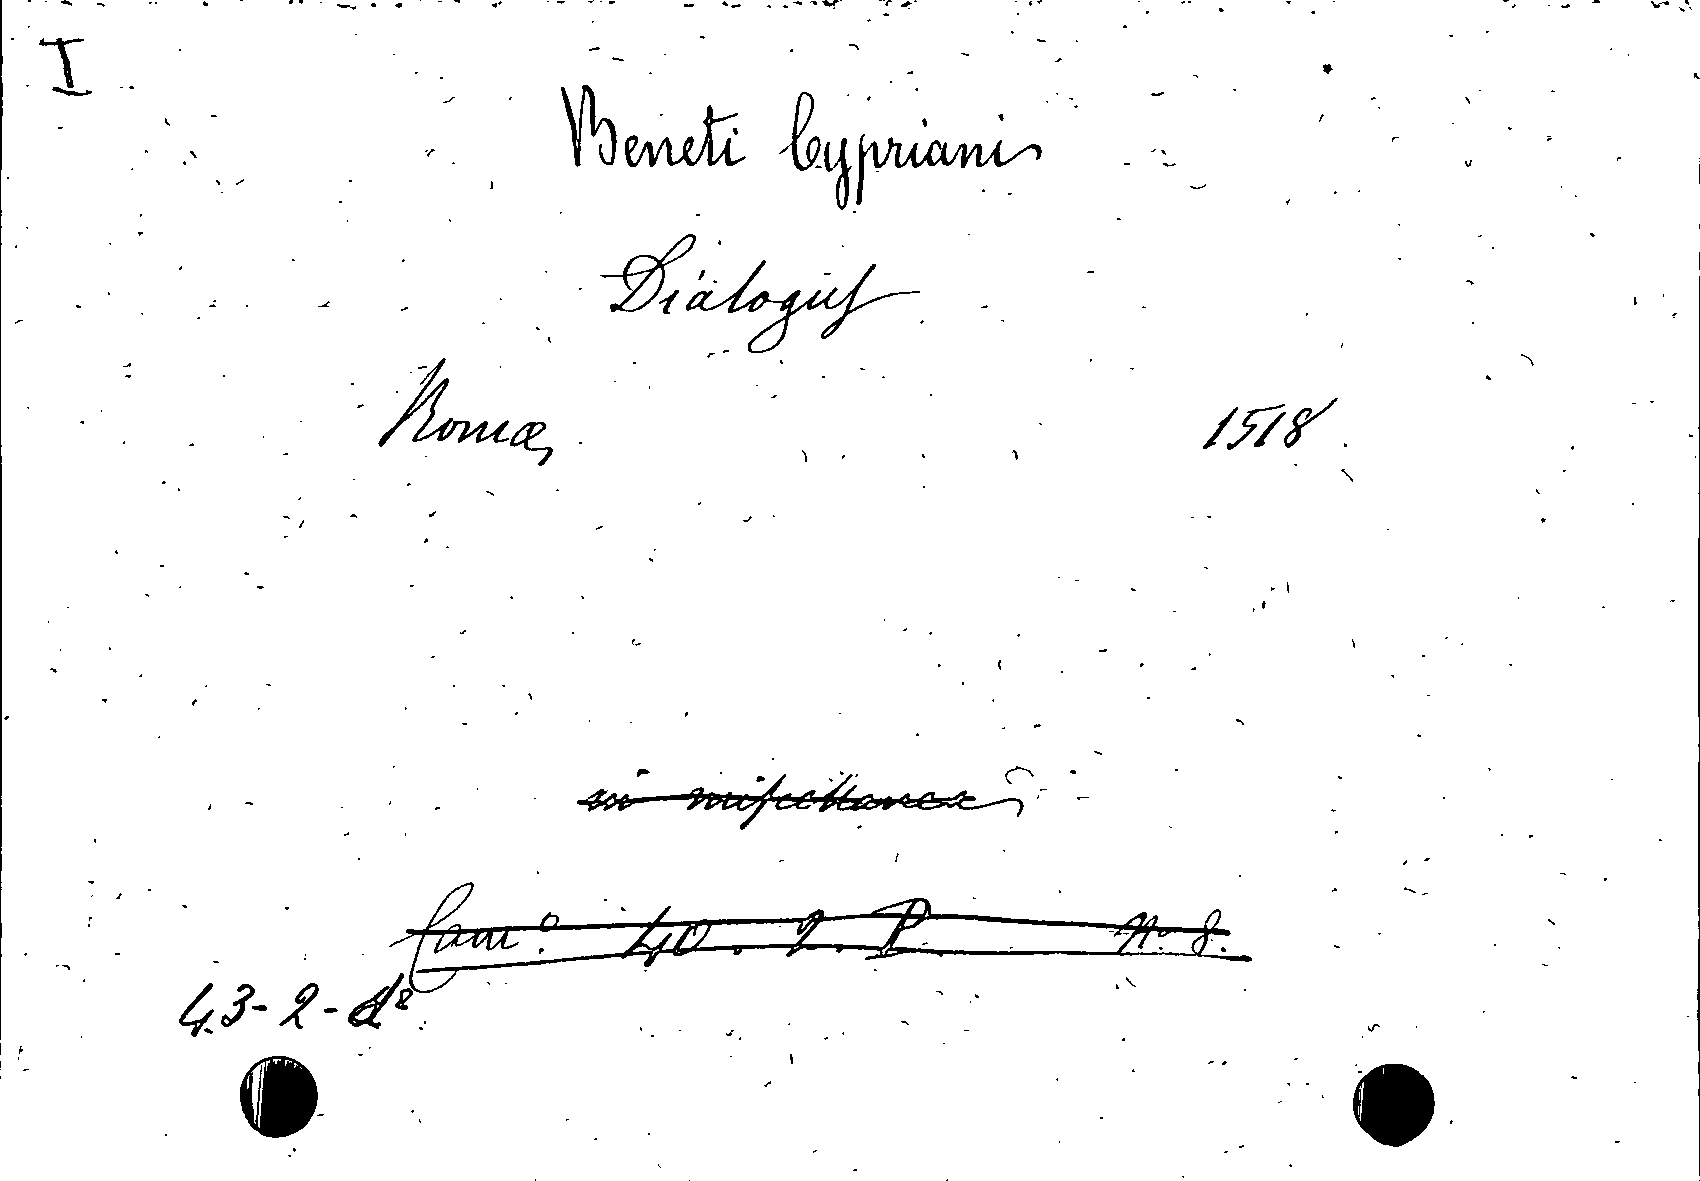 I
Beneti Cypriani
Dialogus
Romæ, 1518
in miscellanea
Cam.º 40. 2. P. Nº 8.
43-2-d⁸